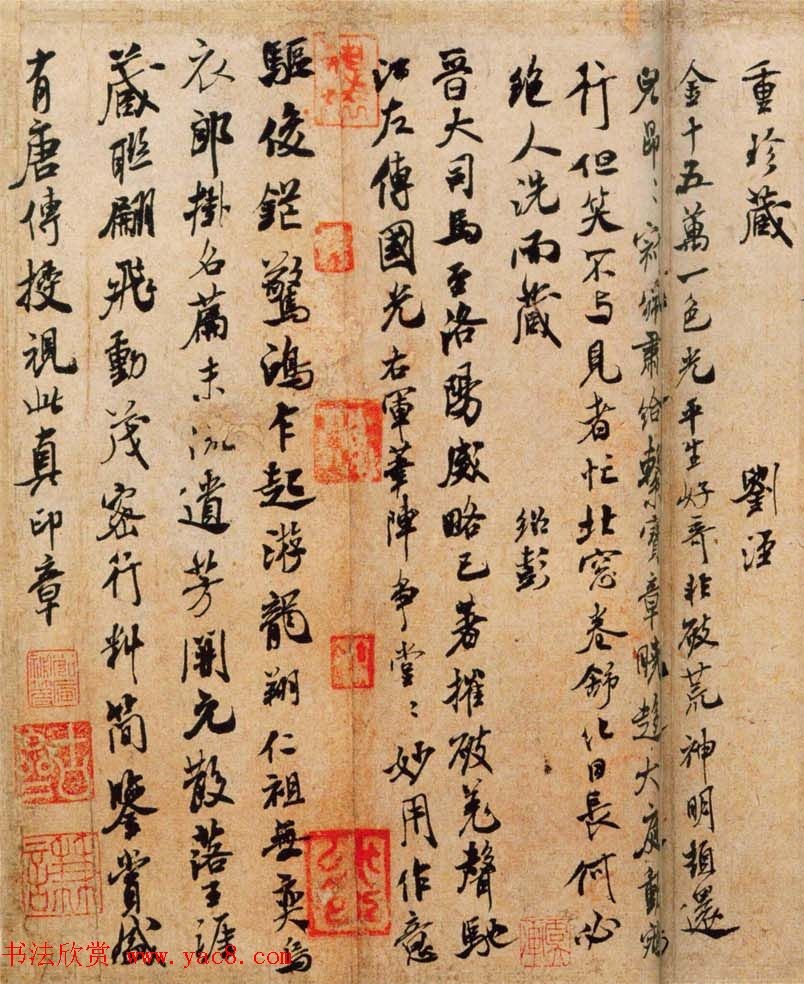 重珍藏　劉涇
金十五萬一色光平生好奇非破荒神明頓還
兒昂〻
肅給
寶章曉趨大慶
行但笑不与見者忙北窗卷舒化日長何必
絶人洗而藏　紹彭
晉大司馬至洛陽威略已著摧破羌聲馳
江左傳國光右軍筆陣爭堂〻妙用作意
驅俊鋩驚鴻乍起游龍翔仁祖無奕烏
衣郎掛名篇末流遺芳開元散落王涯
藏聯翩飛動茂密行料簡鑒賞咸
有唐傳授視此真印章
书法欣赏 www.yac8.com